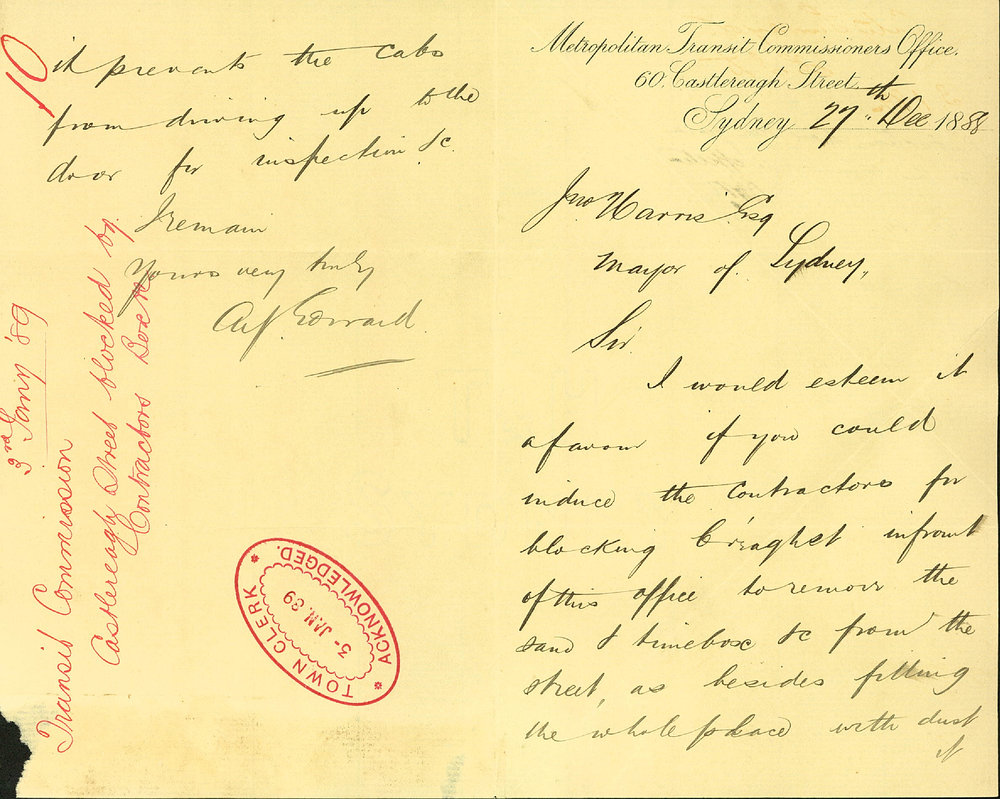 Metropolitan Transit Commissioners Office.
60. Castlereagh Street.
Sydney 27th Dec 1888
Jno Harris Esq
Mayor of Sydney,
Sir
I would esteem it
a favour if you could
induce the Contractors for
blocking C'reagh St infront
of this office to remove the
sand & limebox &c from the
street, as besides filling
the whole place with dust
it
10
it prevents the cabs
from driving up to the
door for inspection &c.
I remain
Yours very truly
Edward.
Transit Commission
3rd Jany '89
Castlereagh Street blocked by
Contractors Box &c
TOWN CLERK
3- JAN. 89
ACKNOWLEDGED.